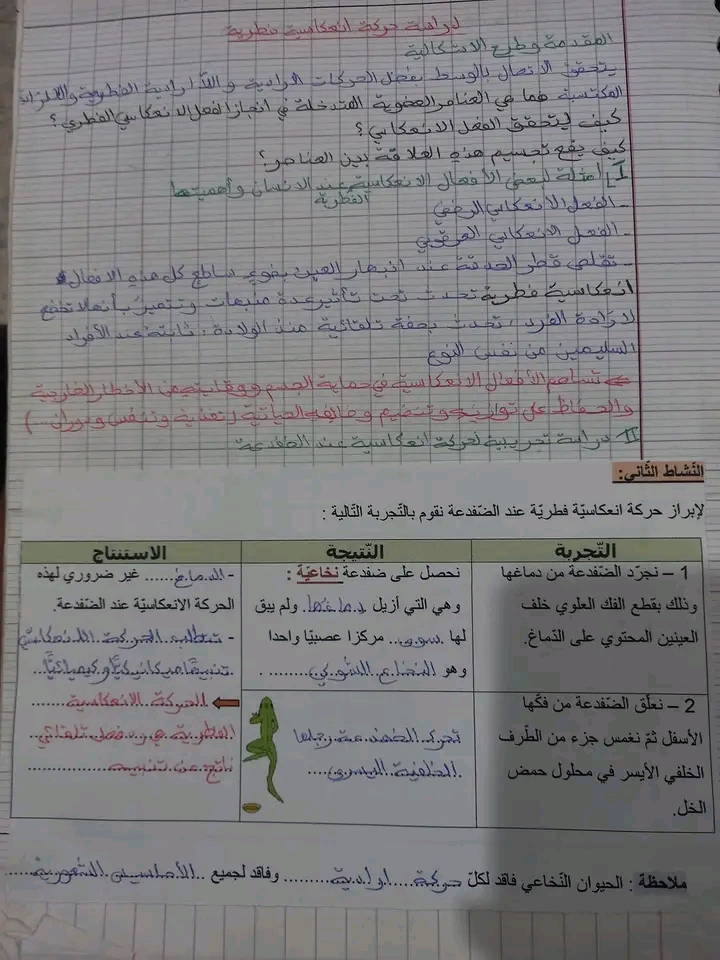 دراسة حركة انعكاسية فطرية
المقدمة وطرح الاشكالية
يتحقق الاتصال بالوسط بفضل الحركات الارادية و اللاارادية الفطرية و
المكتسبة فما هي العناصر العضوية المتدخلة في انجاز الفعل الانعكاسي الفطري؟
كيف يتحقق الفعل الانعكاسي؟
كيف يقع تجسيم هذه العلاقة بين العناصر؟
I أمثلة لبعض الأفعال الانعكاسية عند الانسان وأهميتها
الفطرية
- الفعل الانعكاسي الرضفي
- الفعل الانعكاسي العرقوبي
- تقلص قطر الحدقة عند انبهار العين بضوء ساطع كل هذه الافعال
انعكاسية فطرية تحدث تحت تأثير عدة منبهات وتتميز بأنها لا تخضع
لارادة الفرد، تحدث بصفة تلقائية منذ الولادة، ثابتة عند الأفراد
السليمين من نفس النوع
تساهم الأفعال الانعكاسية في حماية الجسم ووقايته من الأخطار الخارجية
والحفاظ على توازنه وتنظيم وظائفه الحياتية (تغذية وتنفس ودوران...)
II دراسة تجريبية لحركة انعكاسية عند الضفدعة
النّشاط الثّاني:
لإبراز حركة انعكاسيّة فطريّة عند الضفدعة نقوم بالتّجربة التّالية :
التّجربة
النّتيجة
الاستنتاج
1 – نجرّد الضّفدعة من دماغها
وذلك بقطع الفك العلوي خلف
العينين المحتوي على الدّماغ.
نحصل على ضفدعة نخاعيّة :
وهي التي أزيل دماغها ولم يبق
لها سوى... مركزا عصبيّا واحدا
وهو النخاع الشوكي........ .
- الدماغ...... غير ضروري لهذه
الحركة الانعكاسيّة عند الضّفدعة.
- تتطلب الحركة الانعكاسية
تنبيها ميكانيكيا أو كيميائيا
2 – نعلّق الضّفدعة من فكّها
الأسفل ثمّ نغمس جزء من الطّرف
الخلفي الأيسر في محلول حمض
الخل.
تحرك الضفدعة رجلها
الخلفية اليسرى....
الحركة الانعكاسية.......
الفطرية هي رد فعل تلقائي
ناتج عن تنبيه............
ملاحظة : الحيوان النّخاعي فاقد لكلّ حركة.... ارادية......... وفاقد لجميع ..الأحاسيس الشعورية......